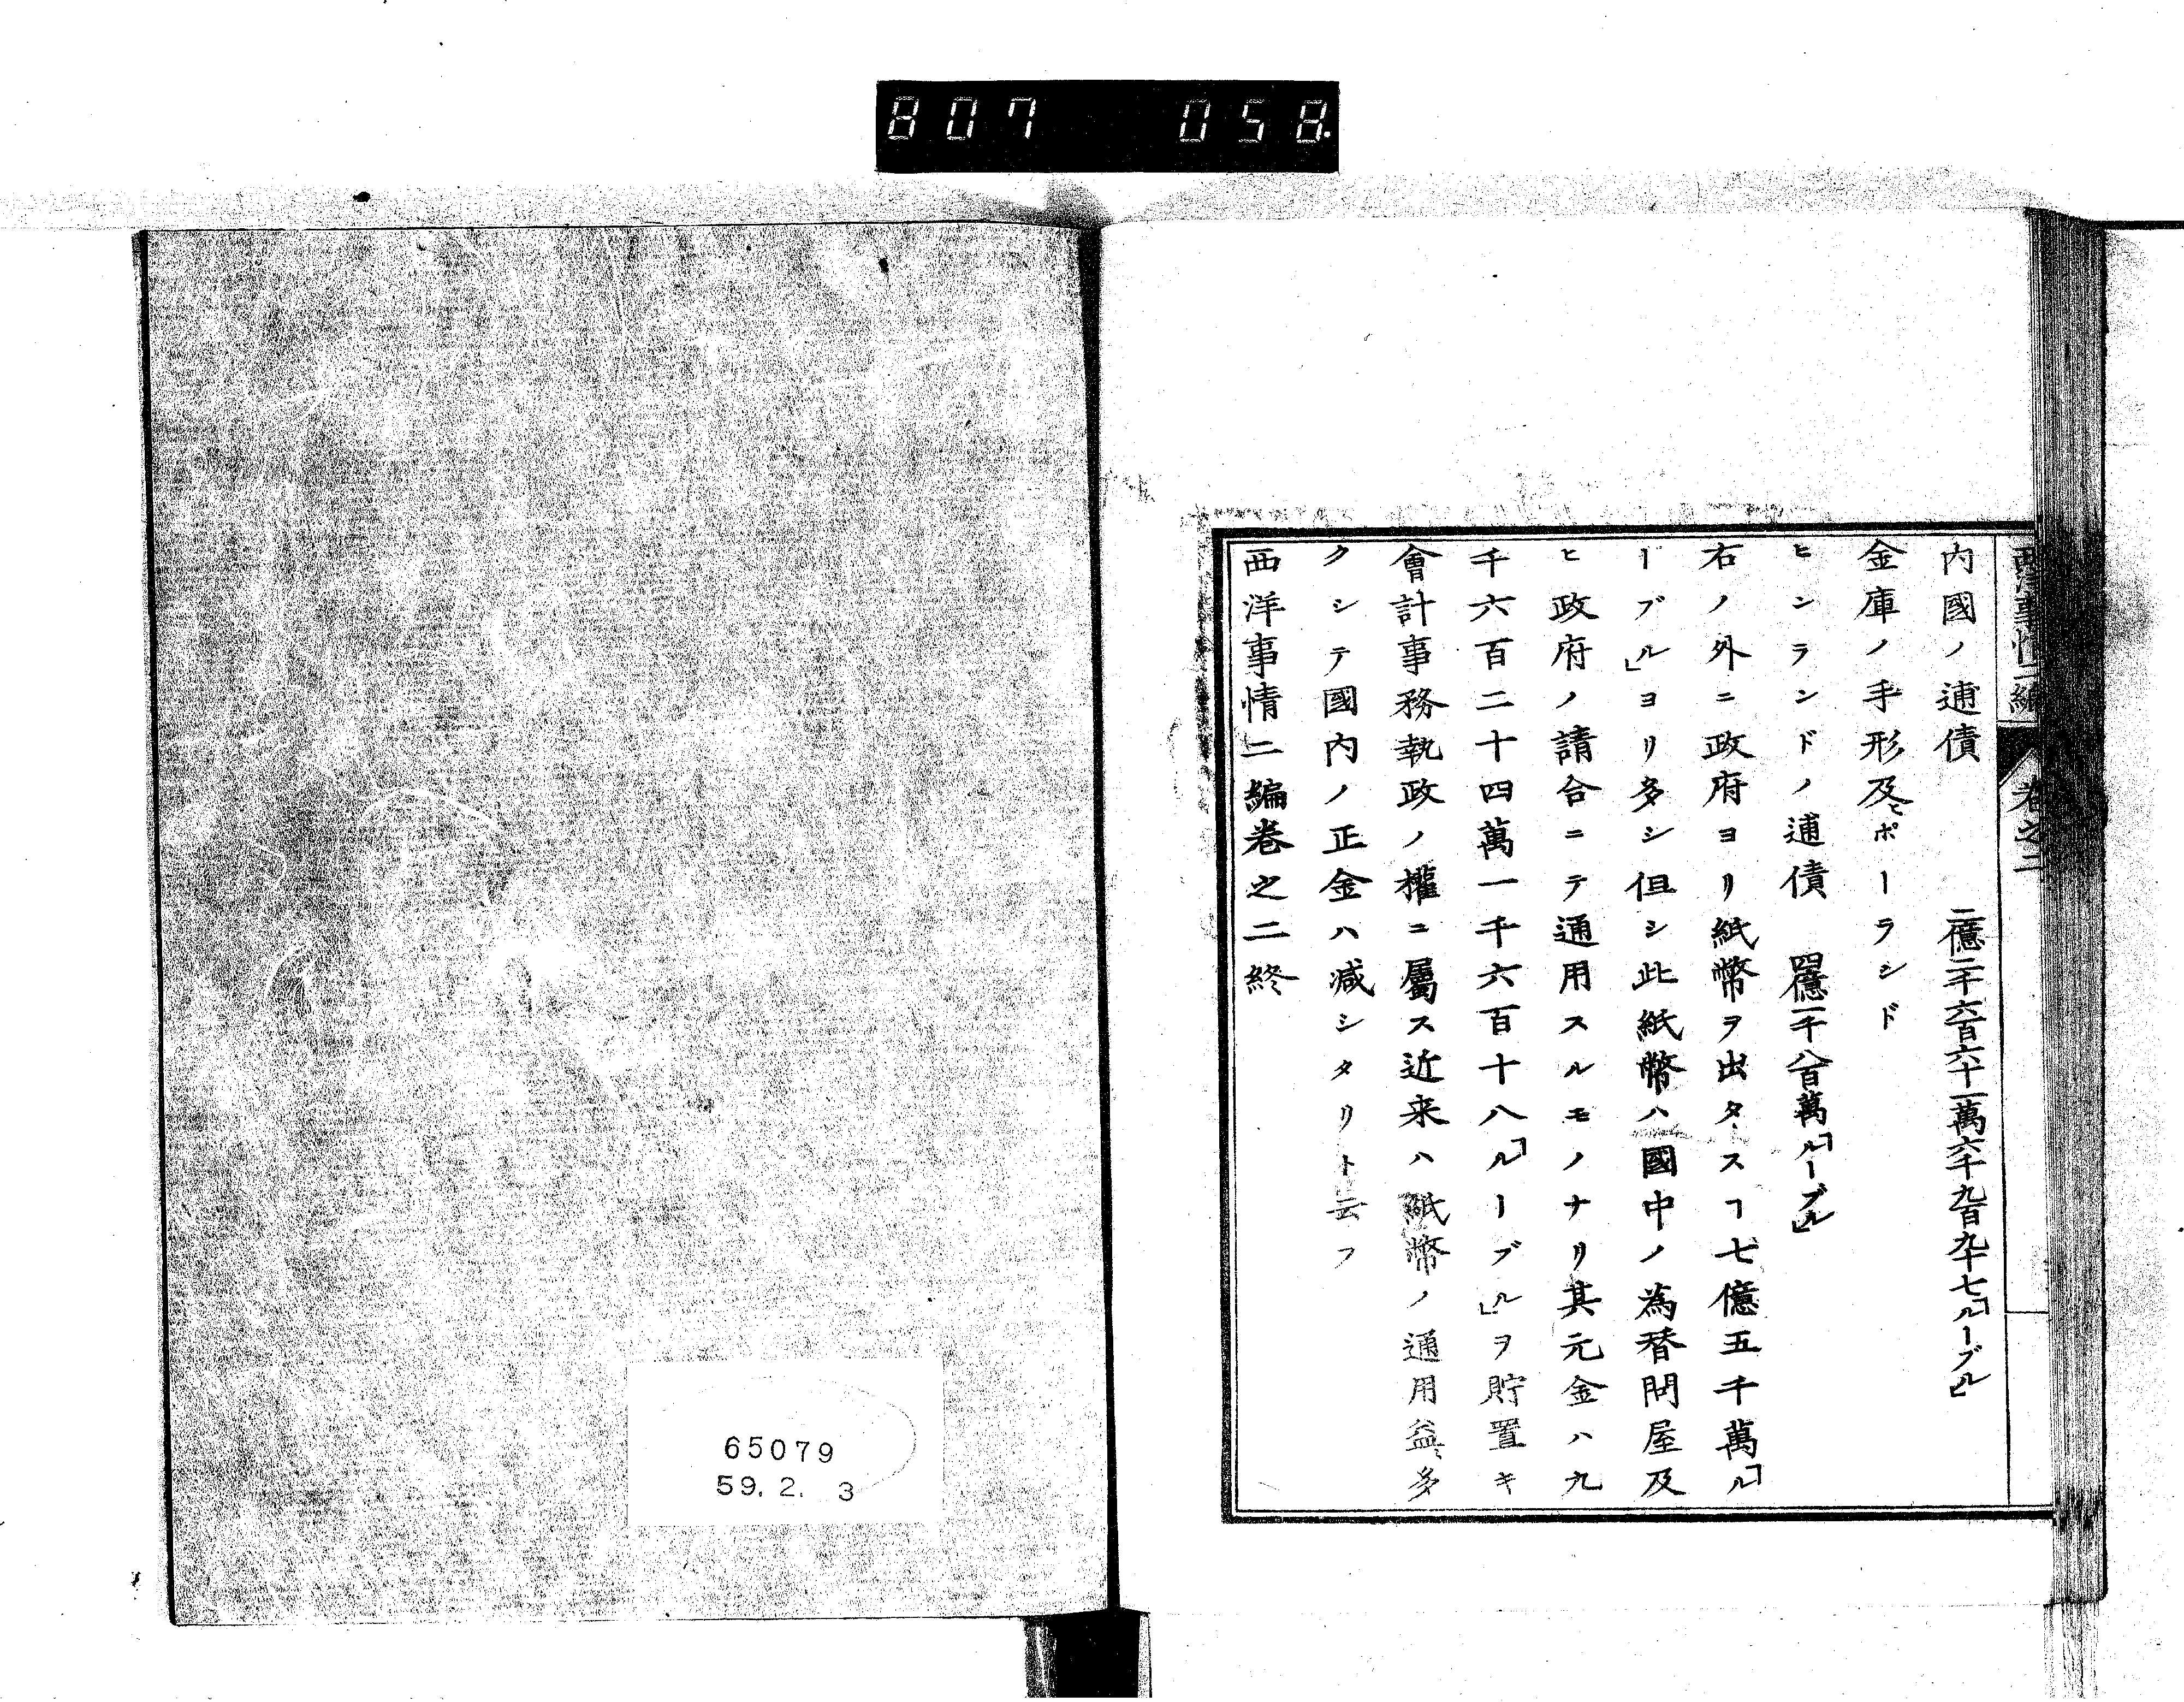 807 058
内國ノ逋債 二億二千六百六十一萬六千九百九十七「ルーブル」
金庫ノ手形及ヒポーランド
ヒンランドノ逋債 四億一千八百萬「ルーブル」
右ノ外ニ政府ヨリ紙幣ヲ出タスヿ七億五千萬「ル
ーブル」ヨリ多シ但シ此紙幣ハ國中ノ為替問屋及
ヒ政府ノ請合ニテ通用スルモノナリ其元金ハ九
千六百二十四萬一千六百十八「ルーブル」ヲ貯置キ
會計事務執政ノ權ニ屬ス近来ハ紙幣ノ通用益〻多
クシテ國内ノ正金ハ減シタリト云フ
西洋事情二編卷之二終
65079
59. 2. 3